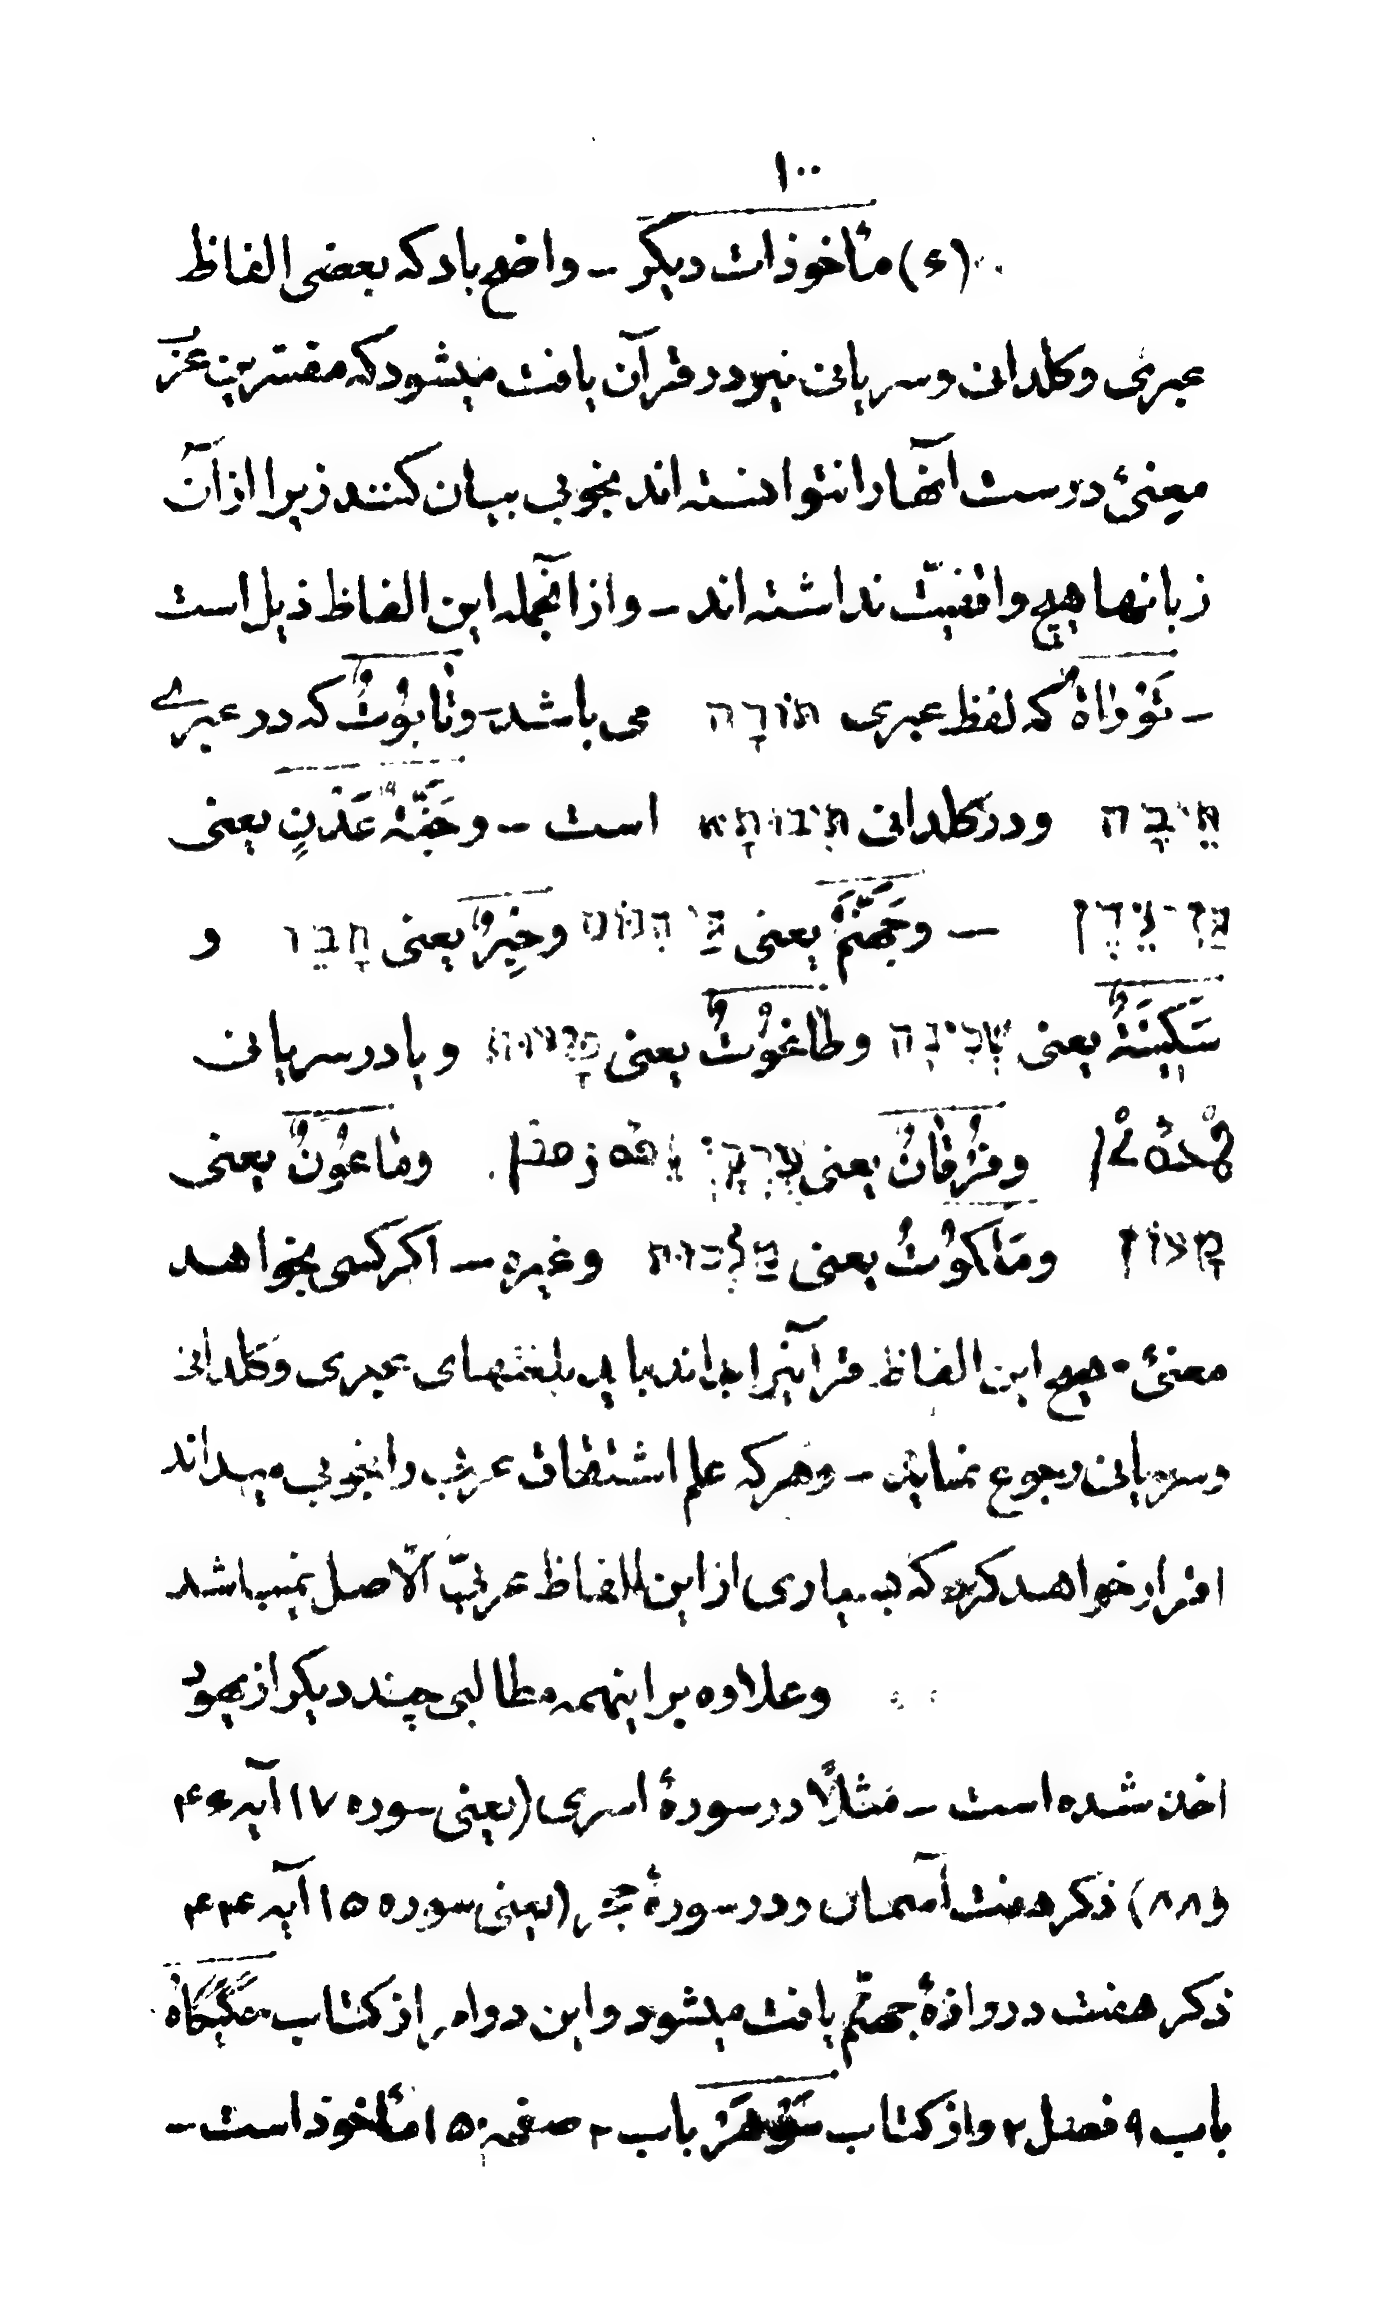 ۱۰۰
(۶) مأخوذات دیکر ــ واضح باد که بعضی الفاظ
عبری وکلدانی وسریانی نیز در قرآن یافت میشود که مفسّرین عرب
معنئ درست آنها را نتوانسته اند بخوبی بیان کنند زیرا از آن
زبانها هیچ واقفیّت نداشته اند ــ و از آنجمله این الفاظ ذیل است
ــ تَوْرٰاةٌ که لفظ عبری תּוֹרָה می باشد ــ و تٰابُوْتٌ که در عبرے
תֵּיבָה ودر کلدانی תֵּיבוּתָא است ــ و جَنَّةُ عَدْنٍ یعنی
גַּן־עֵדֶן ــ و جَهَنَّمُ یعنی גֵּי הִנּוֹם و حِبْرٌ یعنی חָבֵר و
سَکِیْنَةٌ یعنی שְׁכִינָה و طٰاغُوْتٌ یعنی و یا در سریانی
و فُرْقٰانٌ یعنی و مٰاعُوْنٌ یعنی
מָעוֹן و مَلَکُوْتٌ یعنی מַלְכוּת و غیره ــ اکر کسی بخواهد
معنئ صحیح این الفاظ قرآنیرا بداند باید بلغتهای عبری وکلدانی
وسریانی رجوع نماید ــ وهرکه علم اشتقاق عرب را بخوبی میداند
اقرار خواهد کرد که بسیاری از این الفاظ عربیّ الاصل نمیباشد
وعلاوه بر اینهمه مطالبی چند دیکر از یهود
اخذ شده است ــ مثلاً در سورۀ اسری (یعنی سوره ۱۷ آیه ۴۶
و ۸۸) ذکر هفت آسمان ودر سورۀ حجر (یعنی سوره ۱۵ آیه ۴۴
ذکر هفت دروازۀ جهنّم یافت میشود واین دو امر از کتاب حگیگاه
باب ۹ فصل ۲ واز کتاب زوهر باب ۲ صفحه ۱۵۰ مأخوذ است ــ